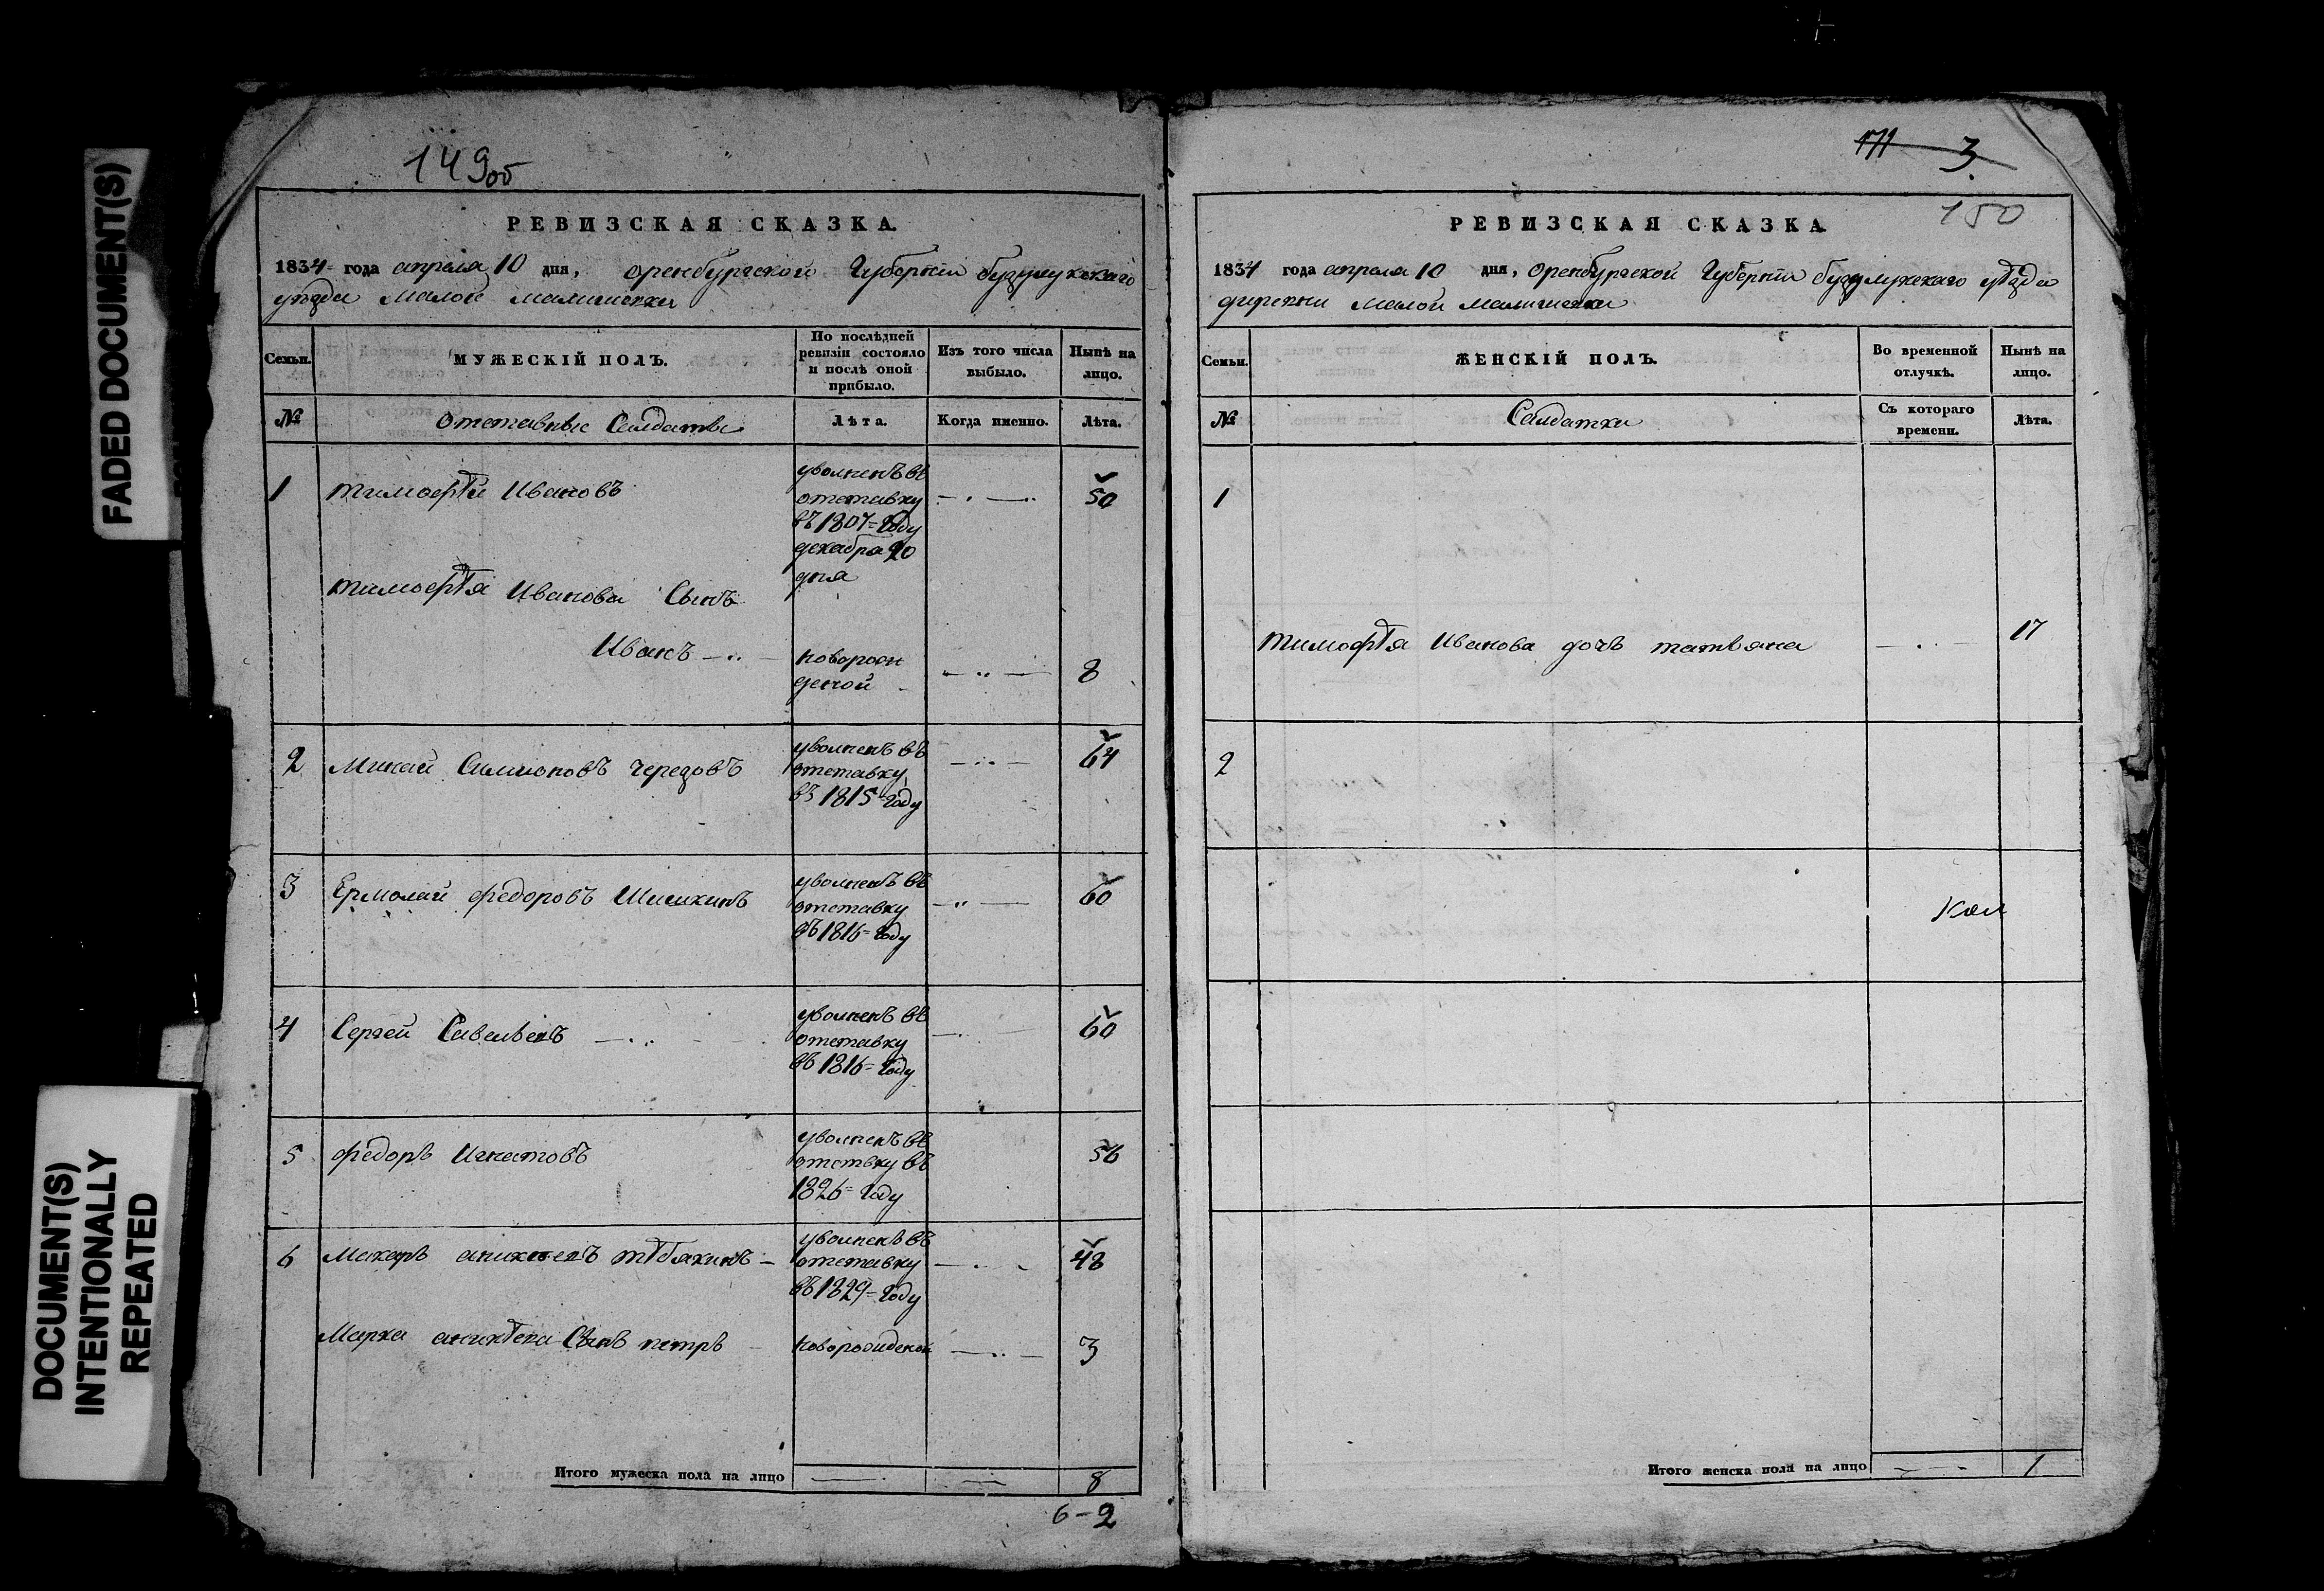 FADED DOCUMENT(S)
DOCUMENT(S)
INTENTIONALLY
REPEATED
149об
РЕВИЗСКАЯ СКАЗКА.
1834 года апреля 10 дня, оренбургской Губернiи бузулукскаго
уезда Малой малышевки
Семьи.
МУЖЕСКIЙ ПОЛЪ.
По послѣдней ревизiи состояло и послѣ оной прибыло.
Изъ того числа выбыло.
Нынѣ на лицо.
№
отставные Салдаты
Лѣта.
Когда именно.
Лѣта.
1 тимофѣй Ивановъ
уволненъ въ
отставку
въ 1807 = Году
декабря 20
дня
50
тимофѣя Иванова Сынъ
Иванъ
новорож
деной
8
2 Минай Симионовъ Чередовъ
уволненъ въ
отставку
въ 1815 = Году
64
3 Ермолай федоровъ Шишкинъ
уволненъ въ
отставку
въ 1816 = Году
60
4 Сергей Савельевъ
уволненъ въ
отставку
въ 1816 = Году
60
5 федоръ Игнатовъ
уволненъ въ
отствку въ
1826 = Году
56
6 Макаръ
уволненъ въ
отставку
въ 1829 = Году
48
Сынъ петръ
новорожденой
3
Итого мужеска пола на лицо
8
6 - 2
3
150
РЕВИЗСКАЯ СКАЗКА
1834 года апреля 10 дня, Оренбургской Губернiи бузулукскаго уѣзда
диревни малой малышевки
Семьи.
ЖЕНСКIЙ ПОЛЪ.
Во временной отлучкѣ.
Нынѣ на лицо.
№
Салдатки
Съ котораго времени.
Лѣта.
1
тимофѣя Иванова дочь татьяна
17
2
Итого женска пола на лицо
1